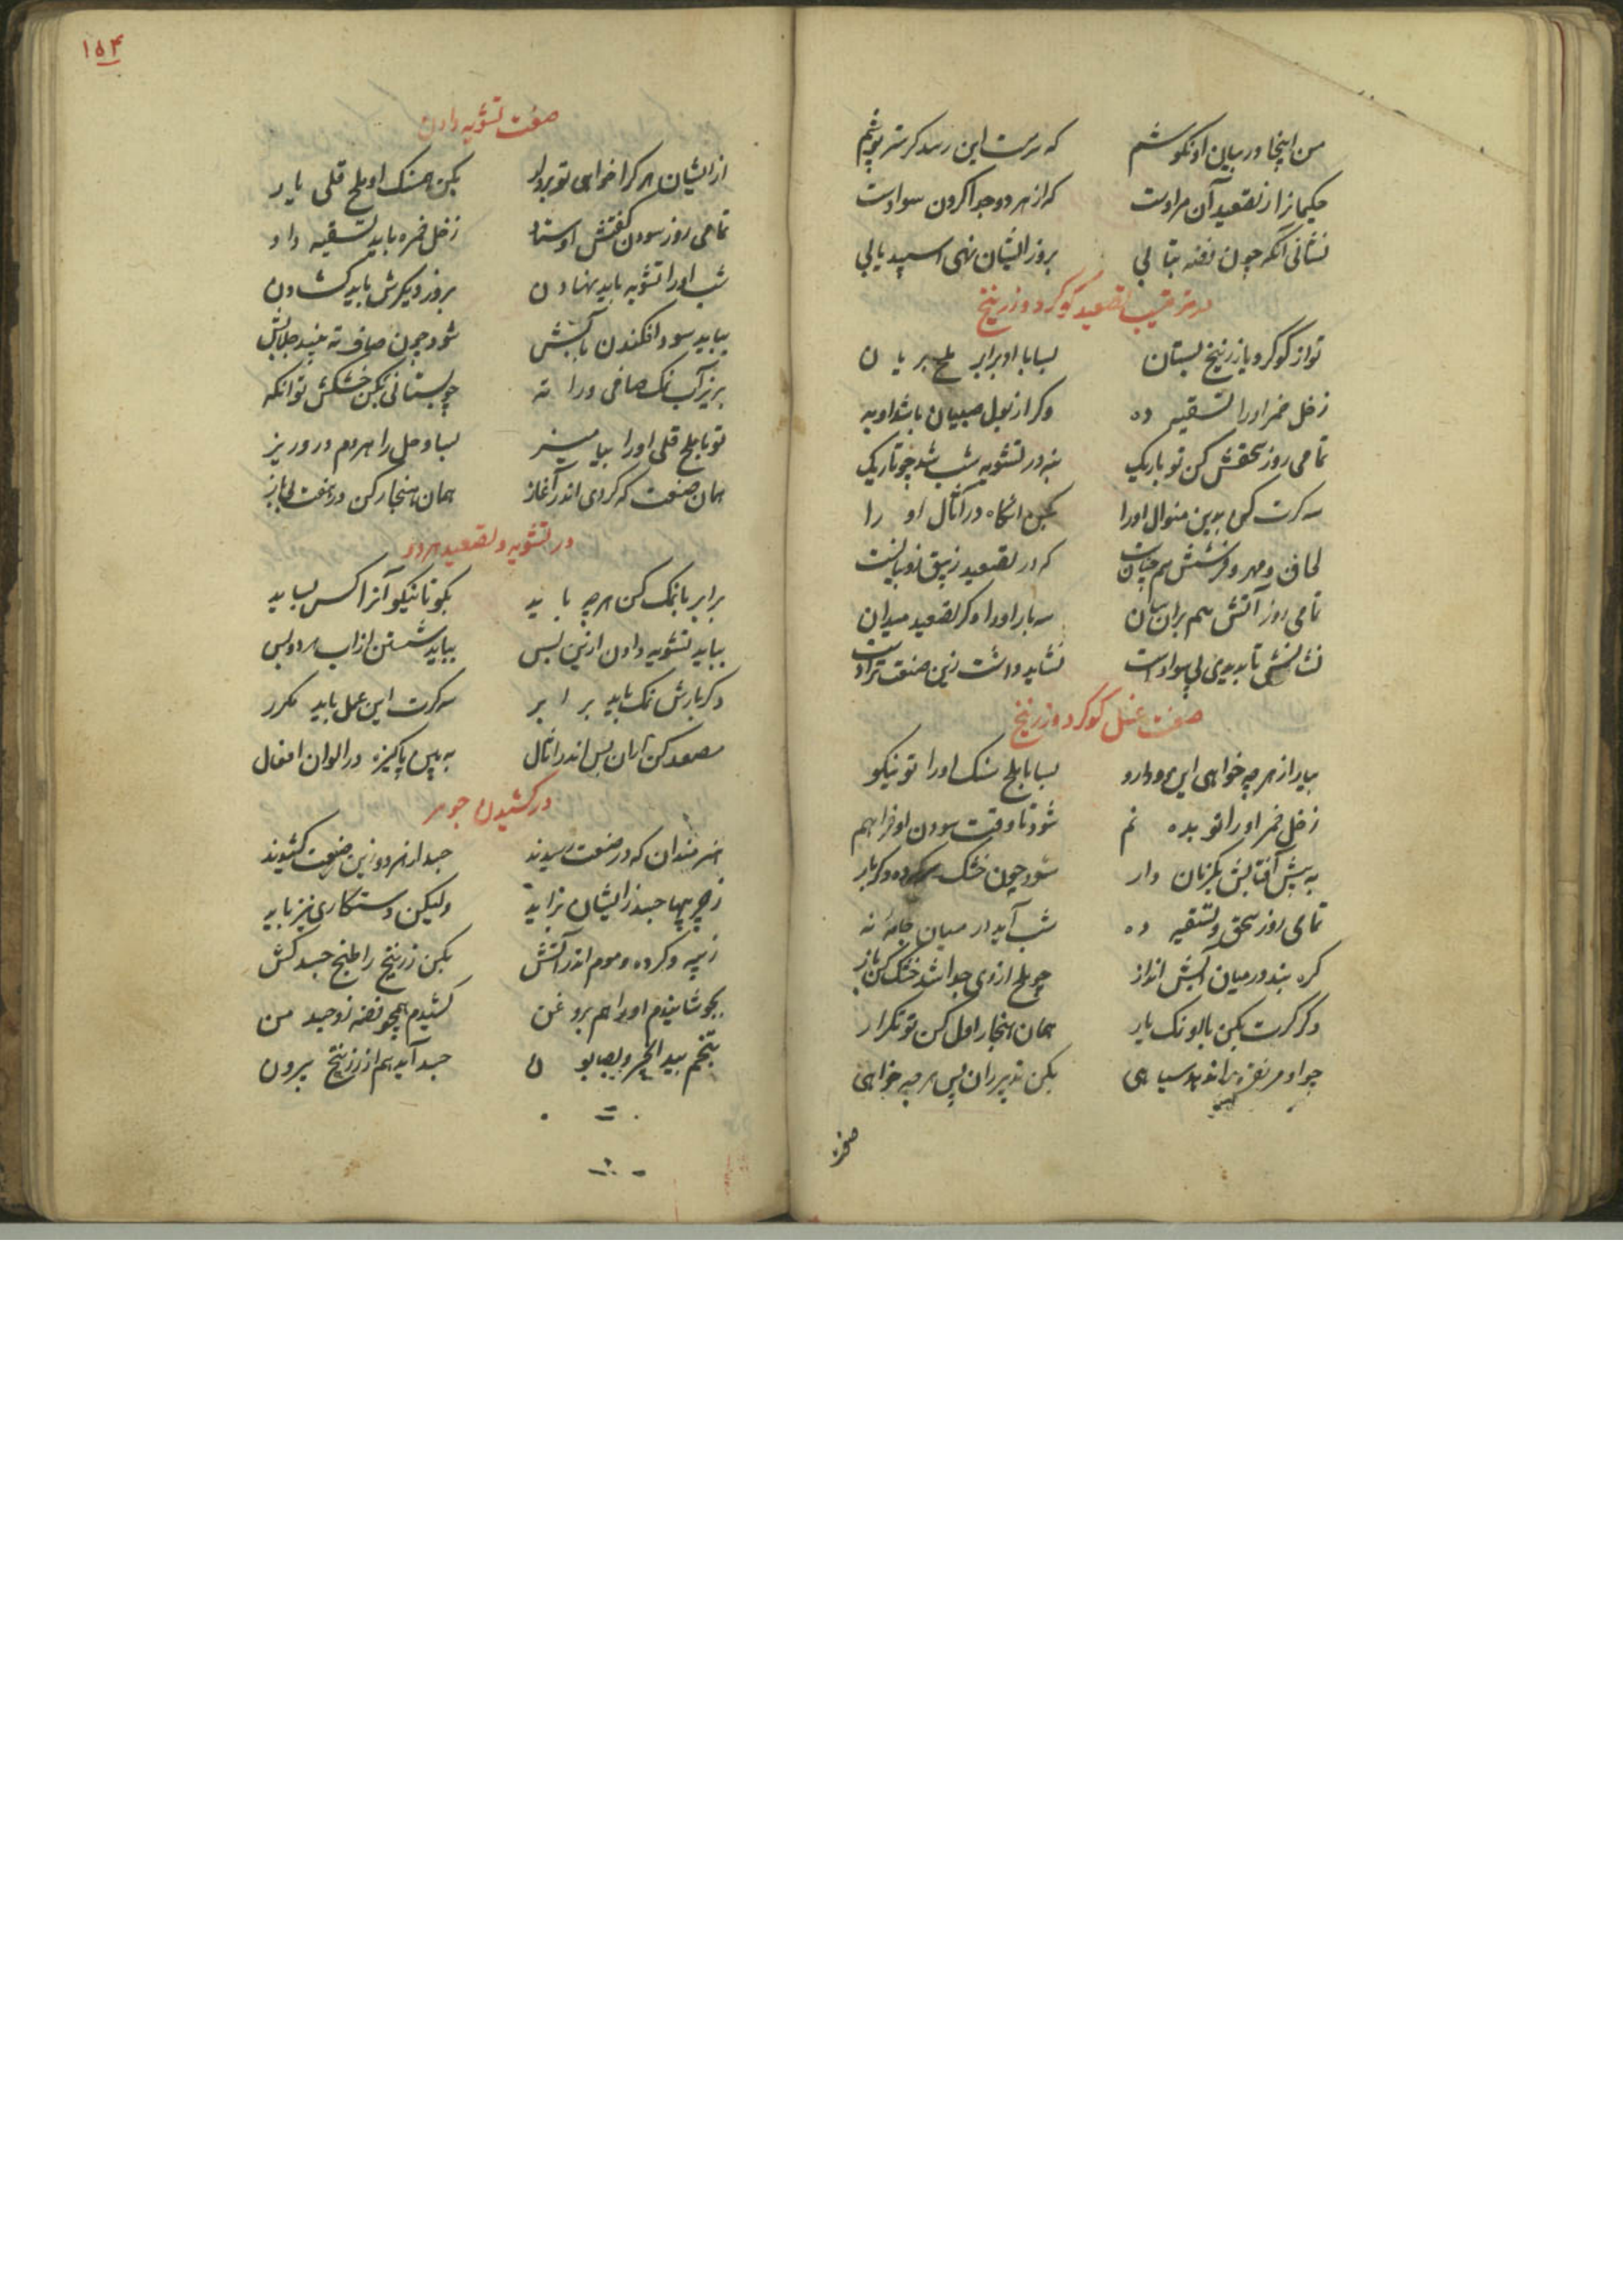 من اینجا در بیان او نکوشم که سرست این رسد کر سر بپوشم
حکیمانرا از تصعید آن مرادست که از هر دو جدا کردن سوادست
نشانی آنکه چون نفته بتابی بروز ایشان نهی اسپید یابی
در ترتیب تصعید کوکرد و زرنیخ
تو از کوکرد یا زرنیخ بستان بسا با او برابر ملح بریان
ز خل خمر او را تسقیه ده وکر از بول صبیان باشد او به
تمامی روز سحقش کن تو باریک بنه در تشویه شب شد چو تاریک
سه کرت کن بدین منوال او را بکن انکاه در آثال او را
لحاف و مهر و فرشش هم چنان که در تصعید زیبق
تمامی روز آتش هم بران سان سه بار او را وکر تصعید میدان
نشانش تا بدیدی بی سوادست نشاید داشت زین صنعت ترا دست
صفت غسل کوکرد و زرنیخ
بیار از هر چه خواهی این دو دارو بسا با ملح سنک او را تو نیکو
ز خل خمر او را تو بده نم شود تا وقت سودن او فراهم
به پیش آفتابش یکزمان دار شود چون خشک کرده دکر بار
تمامی روز سحق و تسقیه ده شب آید در میان جامه نه
کره بند و در میان آبش انداز چو ملح از وی جدا شد خشک کن باز
دکر کرت بکن با او نمک یار همان هنجار اول کن تو تکرار
چو او مر نقره را ندهد سیاهی بکن تدبیر زان پس هر چه خواهی
صفت
۱۵۴
صفت تشویه دادن
از ایشان هر کرا خواهی تو بردار بکن همسنک او ملح قلی یار
تمامی روز سودن کفتش اوستاد ز خل خمره باید تسقیه داد
شب او را تشویه باید نهادن بروز دیکرش باید کشادن
بباید سود افکندن بآبش شود چون صاف ته
بریز آب نمک صافی ورا ته چو بستانی بکن خشکش تو انکه
تو با ملح قلی او را بیامیز بسا و خل را هر دم درو ریز
همان صنعت که کردی اندر آغاز همان هنجار کن در هفت
در تشویه و تصعید هر دو
برابر با نمک کن هر چه باید بکو تا نیکو آنرا کس بساید
بباید تشویه دادن ازین پس بباید شستن از آب
دکر بارش نمک باید برابر سه کرت این عمل باید مکرر
مصعد کن تو آن پس اندر اثال به بین پاکیزه در الوان افعال
در کشیدن جوهر
هنرمندان که در صنعت رسیدند جسد از هر دو زین صنعت کشیدند
ز چربیها جسد زایشان بزاید ولیکن دستکاری نیز باید
ز پیه و کرده و موم اندر آتش بکن زرنیخ را طبخ جسد کش
بجوشانیدم او را هم بروغن کشیدم همچو نقره زو جسد من
بتخم بید انجیر و بصابون جسد آید هم از زرنیخ بیرون